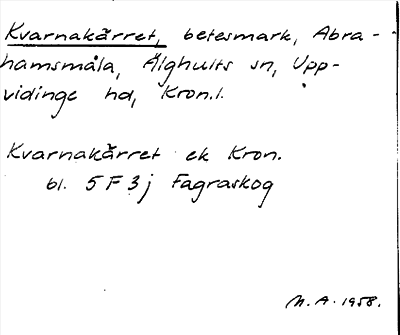 Kvarnakärret, betesmark, Abra-
hamsmåla, Älghults sn, Upp-
vidinge hd, Kron.l.
Kvarnakärret ek Kron.
bl. 5 F 3 j Fagraskog
M.A. 1958.